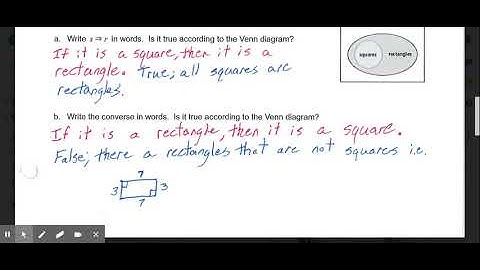 a. Write s ⇒ r in words. Is it true according to the Venn diagram?
If it is a square, then it is a
rectangle. True; all squares are
rectangles.
squares rectangles
b. Write the converse in words. Is it true according to the Venn diagram?
If it is a rectangle, then it is a square.
False; there a rectangles that are not squares i.e.
7
3 3
7